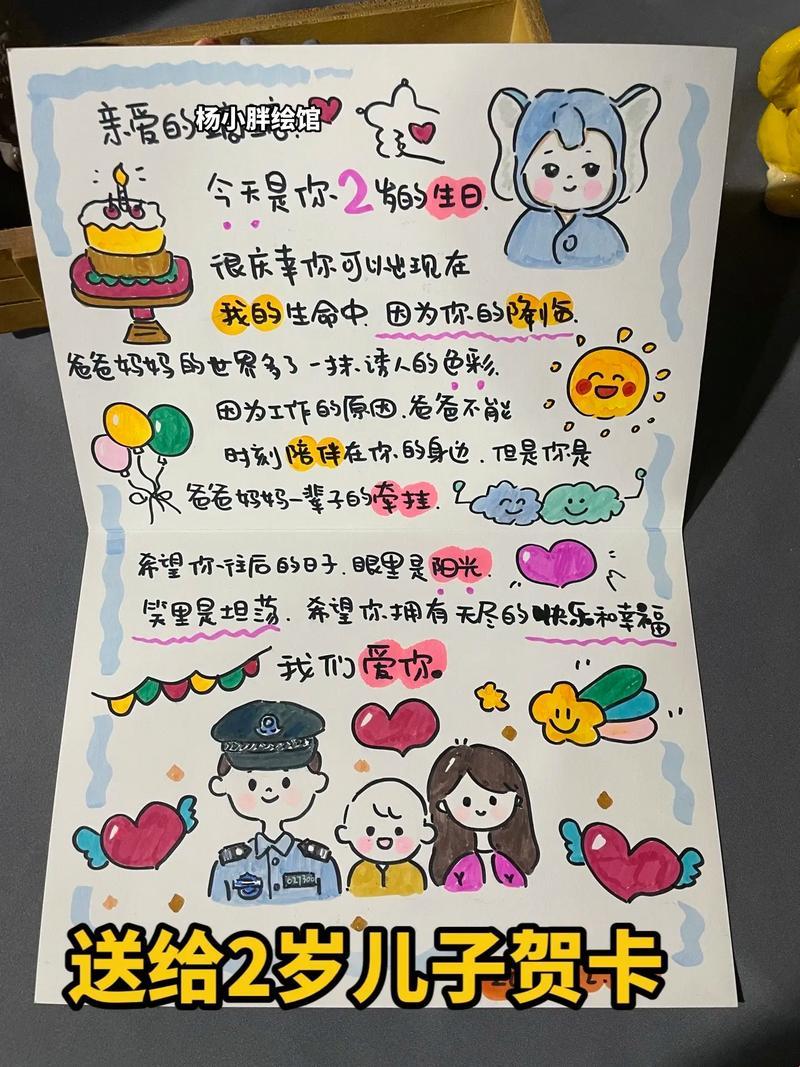 亲爱的
杨小胖绘馆
今天是你2岁的生日.
很庆幸你可以出现在
我的生命中.因为你的降临.
爸爸妈妈的世界多了一抹诱人的色彩.
因为工作的原因.爸爸不能
时刻陪伴在你的身边.但是你是
爸爸妈妈一辈子的牵挂.
希望你往后的日子.眼里是阳光.
笑里是坦荡.希望你拥有无尽的快乐和幸福
我们爱你。
送给2岁儿子贺卡